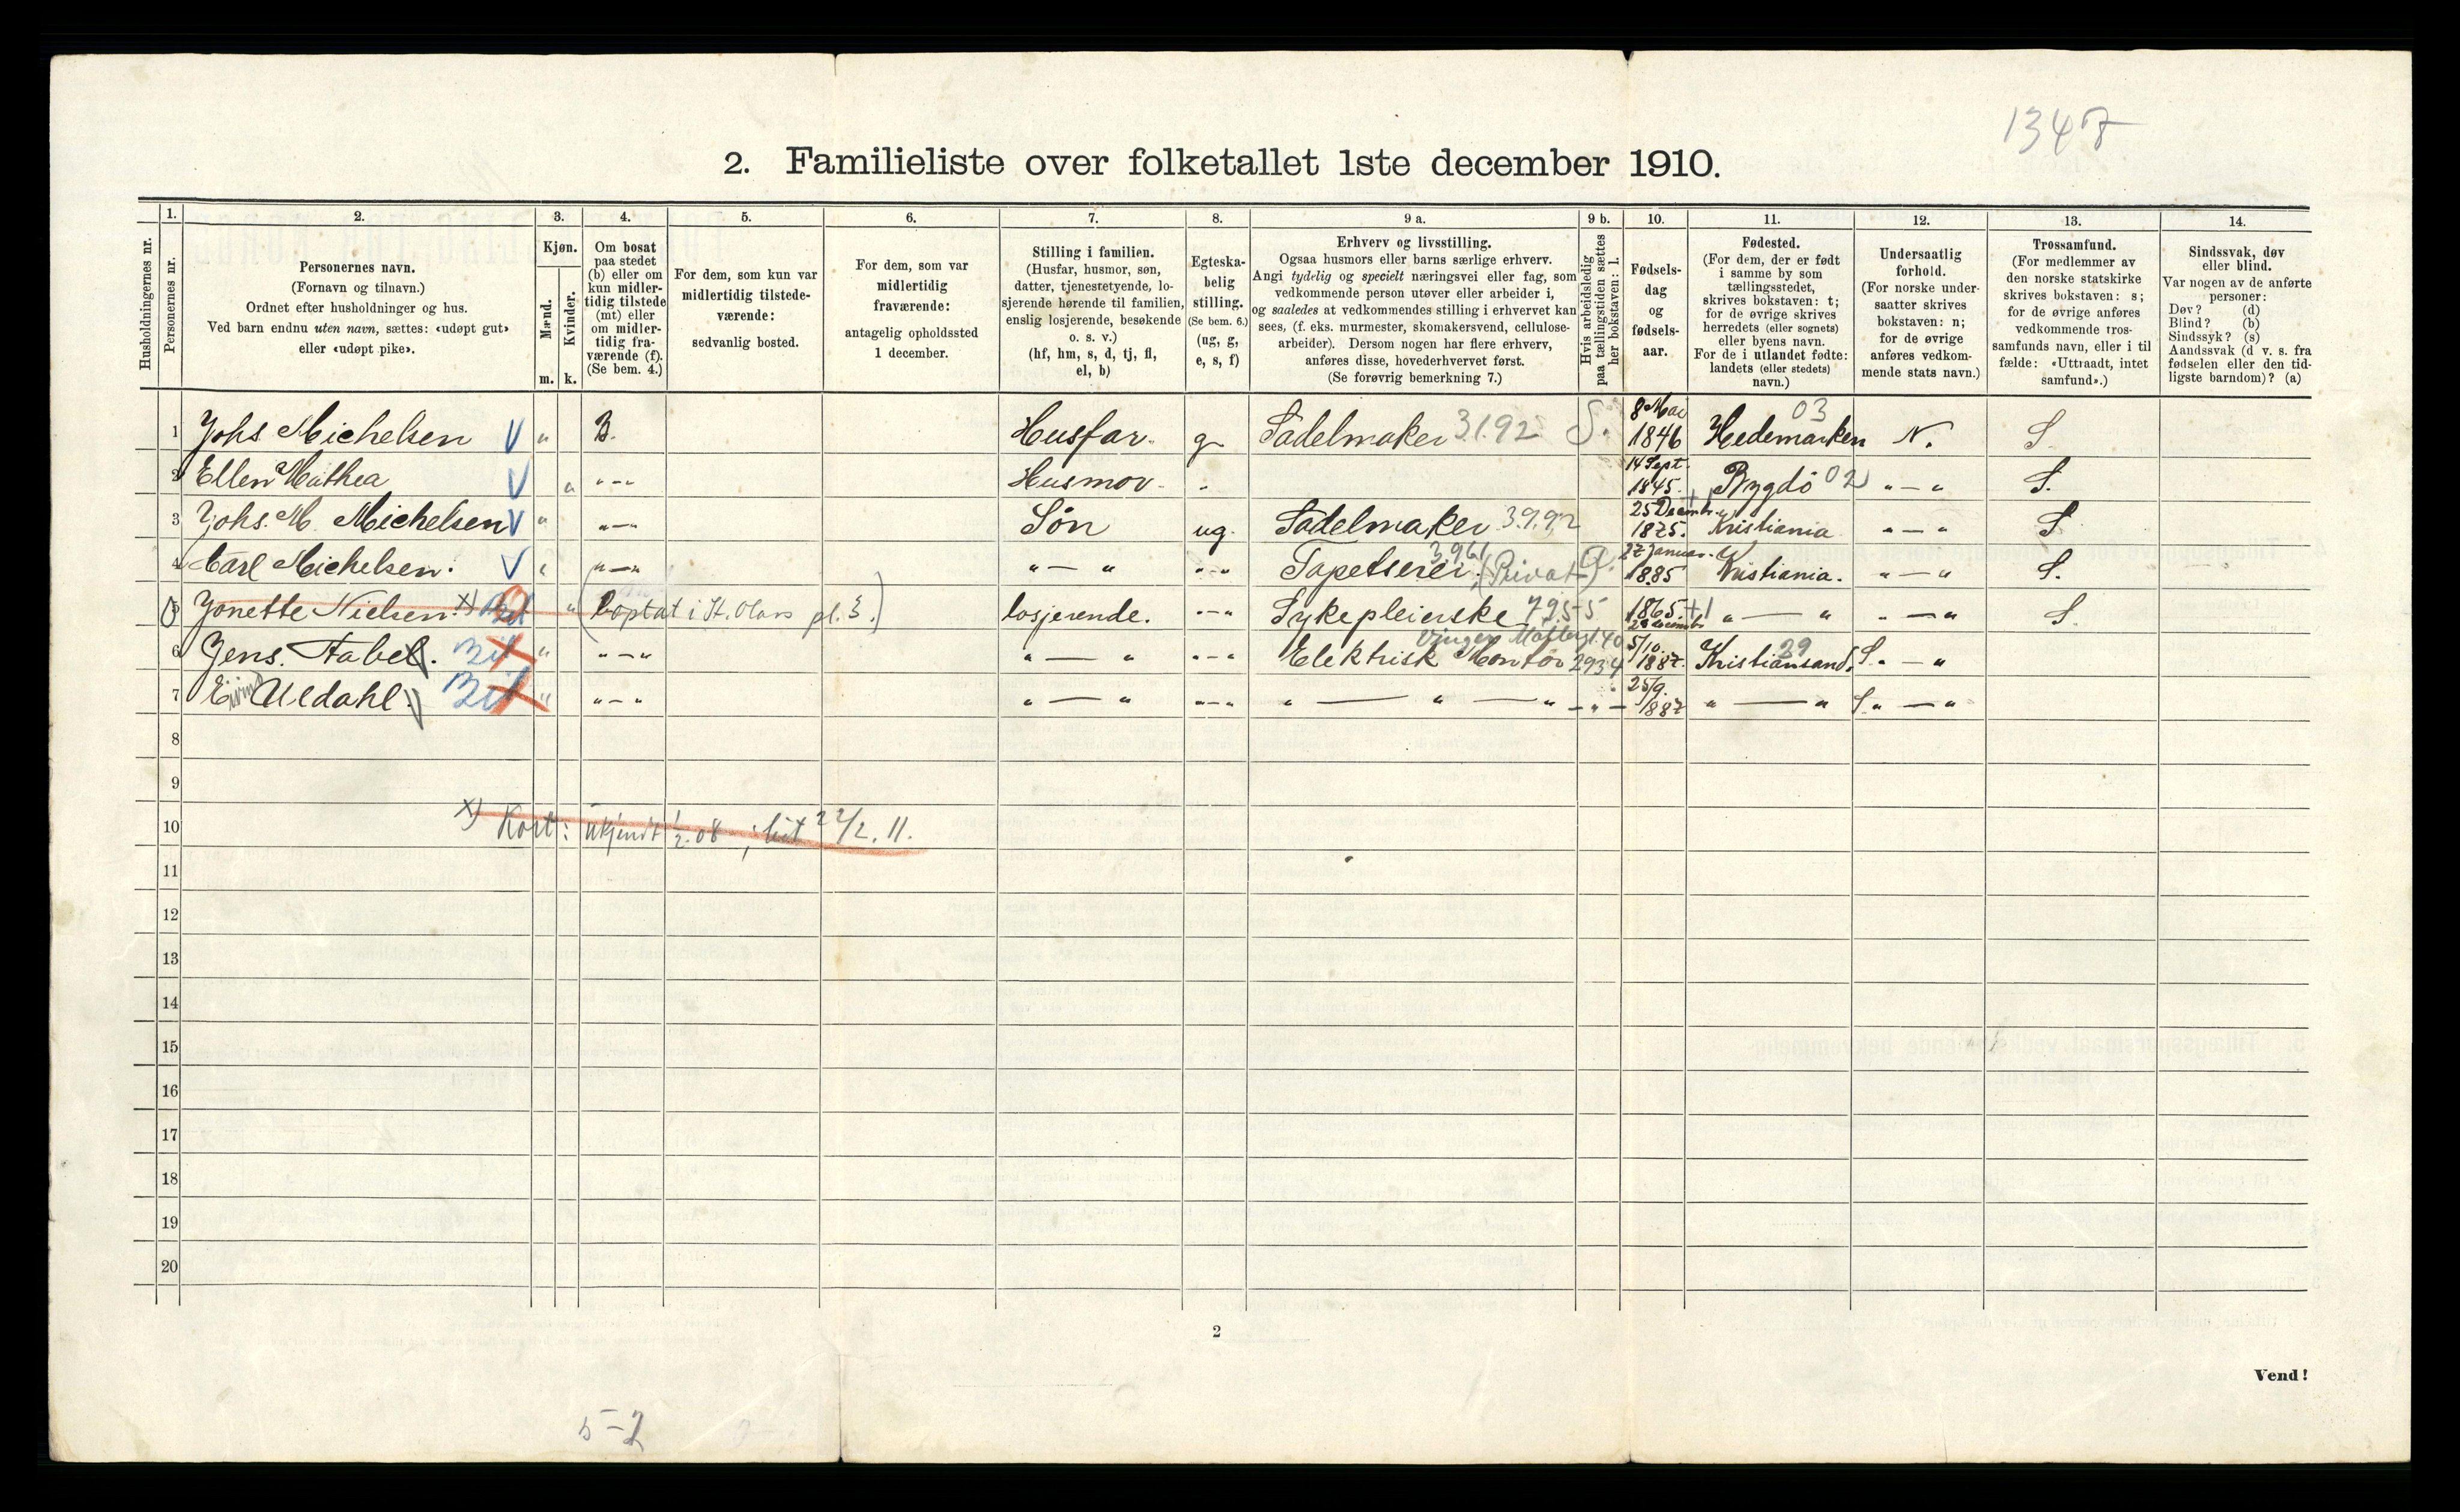 1347
2. Familieliste over folketallet 1ste december 1910.
Husholdningernes nr.
1. Personernes nr.
2. Personernes navn. (Fornavn og tilnavn.) Ordnet efter husholdninger og hus. Ved barn endnu uten navn, sættes: «udøpt gut» eller «udøpt pike».
3. Kjøn. Mænd. m. Kvinder. k.
4. Om bosat paa stedet (b) eller om kun midlertidig tilstede (mt) eller om midlertidig fraværende (f). (Se bem. 4.)
5. For dem, som kun var midlertidig tilstedeværende: sedvanlig bosted.
6. For dem, som var midlertidig fraværende: antagelig opholdssted 1 december.
7. Stilling i familien. (Husfar, husmor, søn, datter, tjenestetyende, losjerende hørende til familien, enslig losjerende, besøkende o. s. v.) (hf, hm, s, d, tj, fl, el, b)
8. Egteskabelig stilling. (Se bem. 6.) (ug, g, e, s, f)
9 a. Erhverv og livsstilling. Ogsaa husmors eller barns særlige erhverv. Angi tydelig og specielt næringsvei eller fag, som vedkommende person utøver eller arbeider i, og saaledes at vedkommendes stilling i erhvervet kan sees, (f. eks. murmester, skomakersvend, cellulosearbeider). Dersom nogen har flere erhverv, anføres disse, hovederhvervet først. (Se forøvrig bemerkning 7.)
9 b. Hvis arbeidsledig paa tællingstiden sættes her bokstaven: l.
10. Fødselsdag og fødselsaar.
11. Fødested. (For dem, der er født i samme by som tællingsstedet, skrives bokstaven: t; for de øvrige skrives herredets (eller sognets) eller byens navn. For de i utlandet fødte: landets (eller stedets) navn.)
12. Undersaatlig forhold. (For norske undersaatter skrives bokstaven: n; for de øvrige anføres vedkommende stats navn.)
13. Trossamfund. (For medlemmer av den norske statskirke skrives bokstaven: s; for de øvrige anføres vedkommende trossamfunds navn, eller i tilfælde: «Uttraadt, intet samfund».)
14. Sindssvak, døv eller blind. Var nogen av de anførte personer: Døv? (d) Blind? (b) Sindssyk? (s) Aandssvak (d v. s. fra fødselen eller den tidligste barndom)? (a)
1 Johs Michelsen V " B. Husfar. g Sadelmaker 3.1.92 S. 8 Mai 1846 Hedemarken 03 N. S
2 Ellen Mathea V " "-" Husmor. " 14 Sept. 1845. Bygdö 02 "-" S.
3 Johs. M. Michelsen V " "-" Sön ug. Sadelmaker 3.9.92 25 Decemb. 1875. Kristiania "-" S
4 Carl Michelsen. V " "-" "-" "-" Tapetserer. 3.961 (Privat) 27 Januar. 1885 Kristiania. "-" S.
5 Jonette Nielsen. x) " (Optat i St. Olavs pl. 3.) losjerende. "-" Sykepleierske 795-5 1865. "-" "-" S
6 Jens. Fabel. " "-" "-" "-" Elektrisk Montör 2934 5/10. 1887. Kristiansand S. 29 "-"
7 Eivind Uldahl. " "-" "-" "-" "-"-" -"- 25/9. 1887 "-" S "-"
8
9
10 x) Kort: ukjendt 1/2.08 -; 22/2.11.
11
12
13
14
15
16
17
18
19
20
2
Vend!
5-2